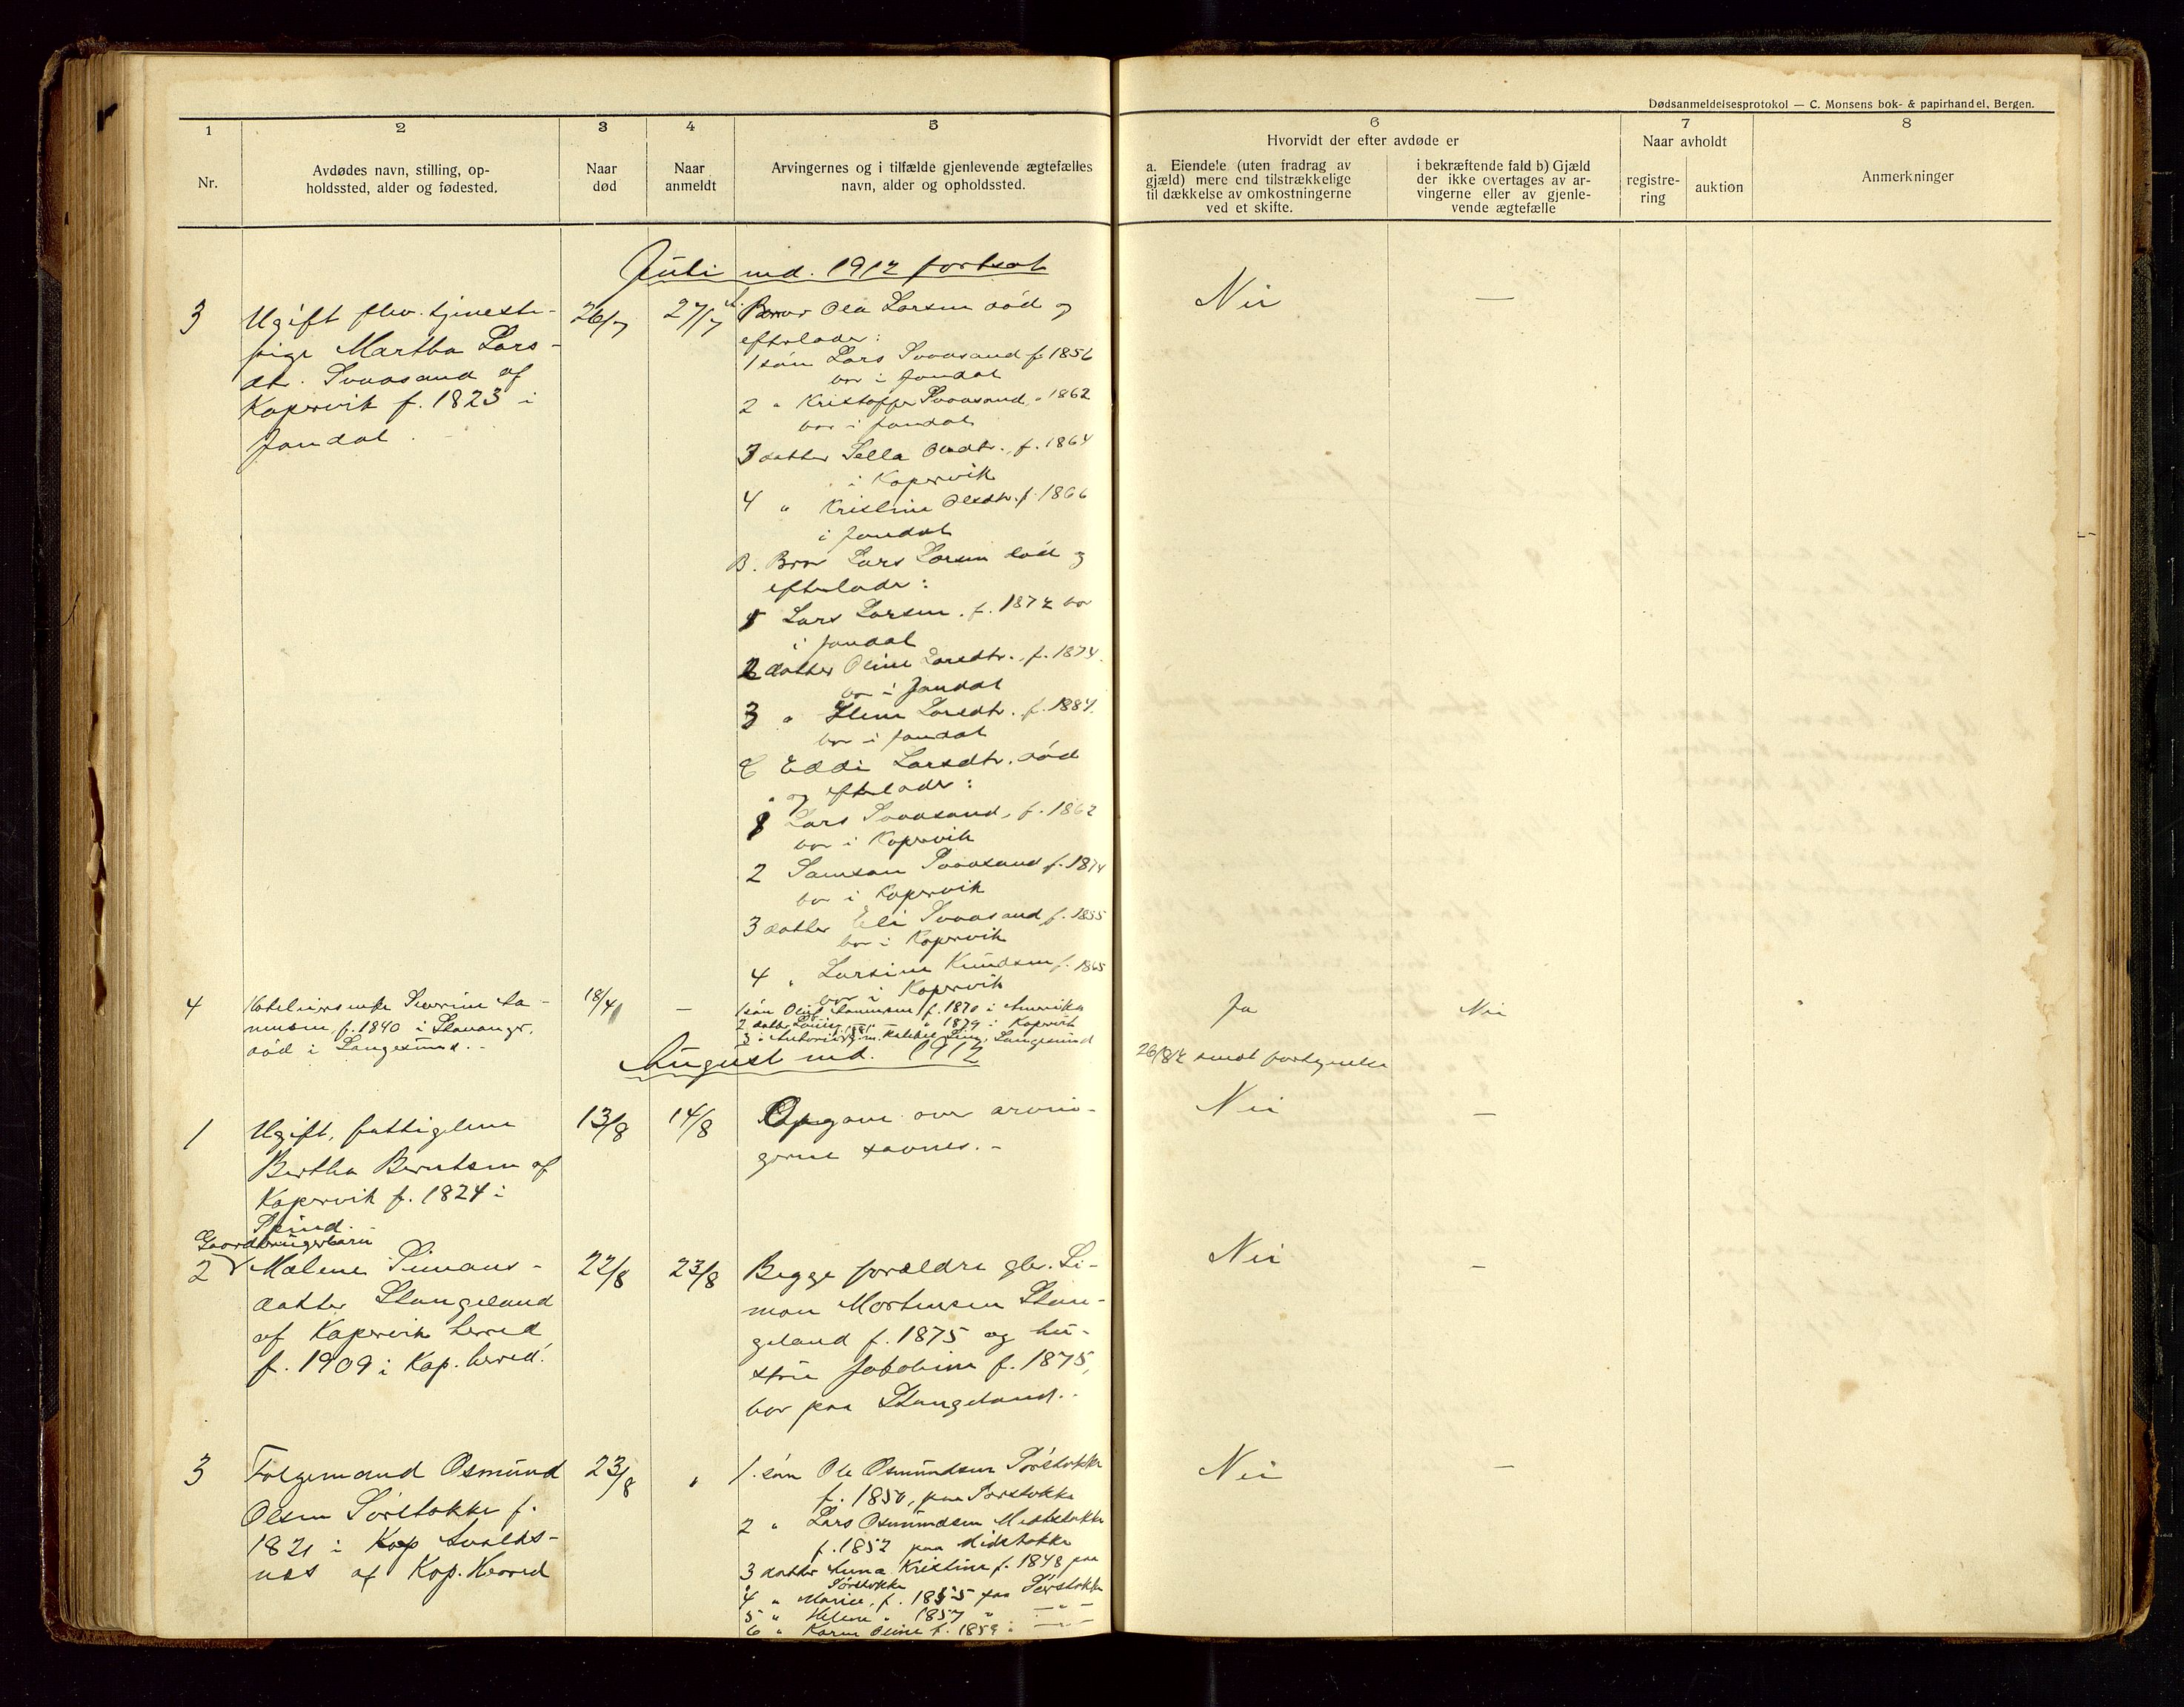 Dødsanmeldelsesprotokol — C. Monsens bok- & papirhandel, Bergen.
1 2 3 4 5 6 7 8
Nr.
Avdødes navn, stilling, op-
holdssted, alder og fødested.
Naar
død
Naar
anmeldt
Arvingernes og i tilfælde gjenlevende ægtefælles
navn, alder og opholdssted.
Hvorvidt der efter avdøde er
a. Eiendele (uten fradrag av
gjæld) mere end tilstrækkelige
til dækkelse av omkostningerne
ved et skifte.
i bekræftende fald b) Gjæld
der ikke overtages av ar-
vingerne eller av gjenle-
vende ægtefælle
Naar avholdt
registre-
ring
auktion
Anmerkninger
Juli md. 1912 fortsat
3
Ugift flov. tjeneste-
pige Martha Lars-
dtr. Svaasand af
Kopervik f. 1823 i
Jondal.
26/7
27/7
Bror Ola Larsen død og
efterlader:
1 søn Lars Svaasand f. 1856
bor i Jondal
2 " Kristoffer Svaasand " 1862
bor i Jondal
3 datter Sella Olsdtr., f. 1864
i Kopervik
4 " Kristine Olsdtr. f. 1866
i Jondal
B. Bror Lars Larsen død og
efterlader:
1 Lars Larsen. f. 1872 bor
i Jondal
2 datter Oline Larsdtr., f. 1874.
bor i Jondal
3 " Larsdtr. f. 1884.
bor i Jondal
C Eddi Larsdtr. død
og efterlader:
1 Lars Svaasand, f. 1862
bor i Kopervik
2 Samson Svaasand f. 1874
bor i Kopervik
3 datter Eli Svaasand f. 1855
bor i Kopervik
4 " Larsine Knudsen f. 1865
bor i Kopervik
Nei —
4
Severine Sa-
muelsen, f. 1840 i Stavanger,
død i Langesund. -
18/4
—
1 søn f. 1870 i Amerika
2 datter " 1879 i Kopervik
3 " Langesund
Ja Nei
August md. 1912
26/8 12 sendt fortegnelse
1
Ugift, fattiglem
Bertha Berntsen af
Kopervik f. 1824 i
13/8
14/8
Opgave over arvin-
gerne savnes. -
Nei —
Gaardbrugerbarn
2 Malene Simons-
datter Stangeland
af Kopervik herred
f. 1909 i Kop. herred.
22/8
23/8
Begge forældre gbr. Si-
mon Mortensen Stan-
geland f. 1875 og hu-
stru Jakobine f. 1875,
bor paa Stangeland. -
Nei —
3
Folgemand Osmund
Olsen Sørstokke f.
1821 i Kop Avalds-
nes af Kop. Herred
23/8
"
1. søn Ole Osmundsen Sørstokke
f. 1850, paa Sørstokke
2 " Lars Osmundsen Midtstokke
f. 1852 paa Midstokke
3 datter Anna Kristine f. 1848 paa
Sørstokke
4 " Marie, f. 1855 paa Sørstokke
5 " Helene " 1857 " — " —
6 " Karen Oline f. 1859 " — " —
Nei —